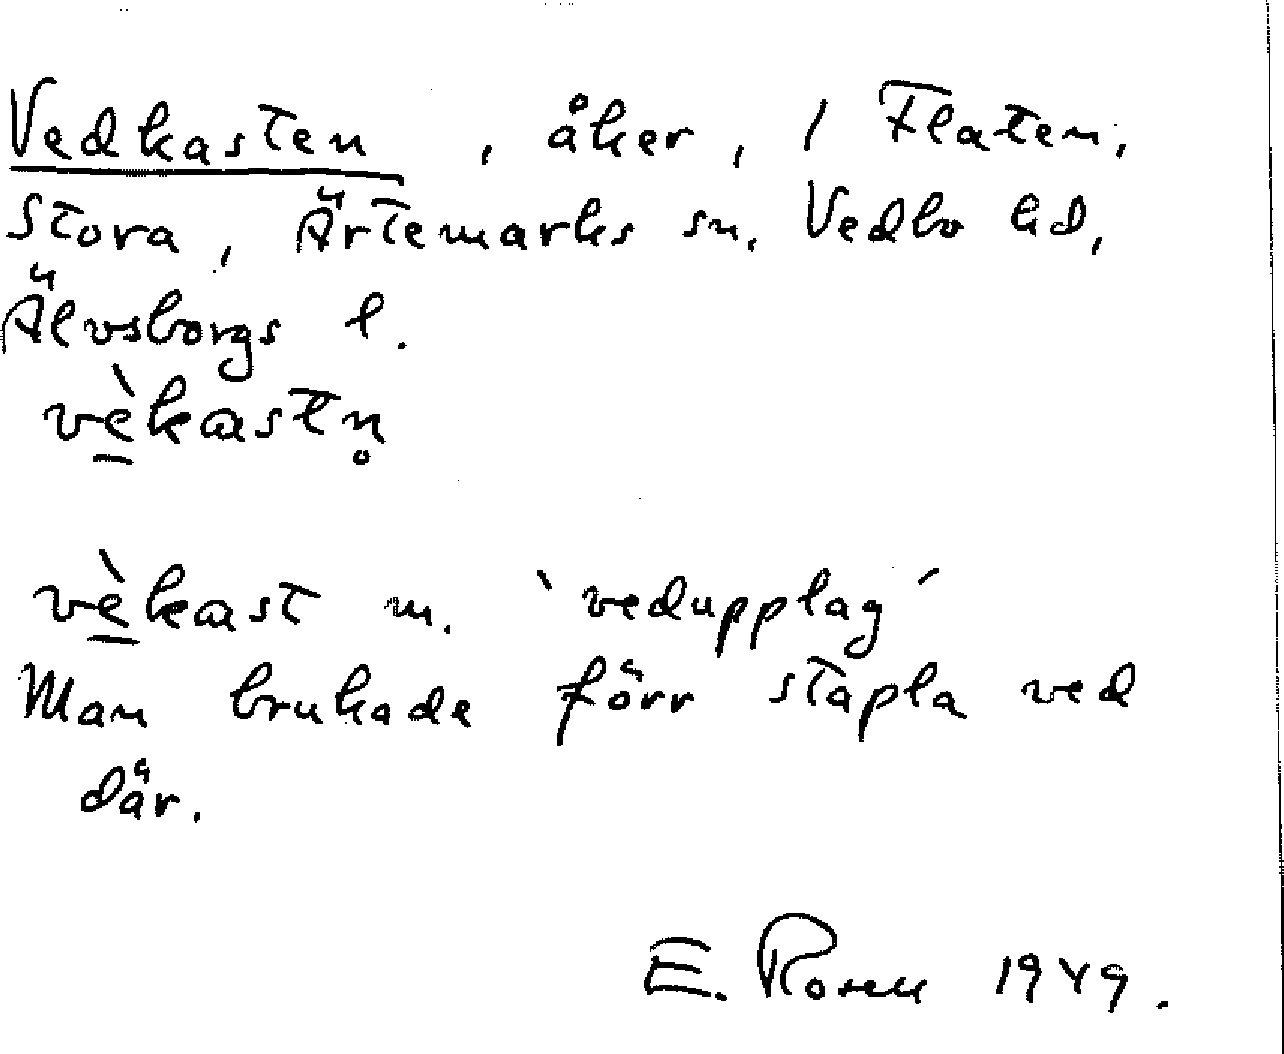 Vedkasten, åker, 1 Flaten,
Stora, Ärtemarks sn, Vedbo hd,
Älvsborgs l.
vèkastn̥
vèkast m. `vedupplag´
Man brukade förr stapla ved
där.
E. Rosen 1949.